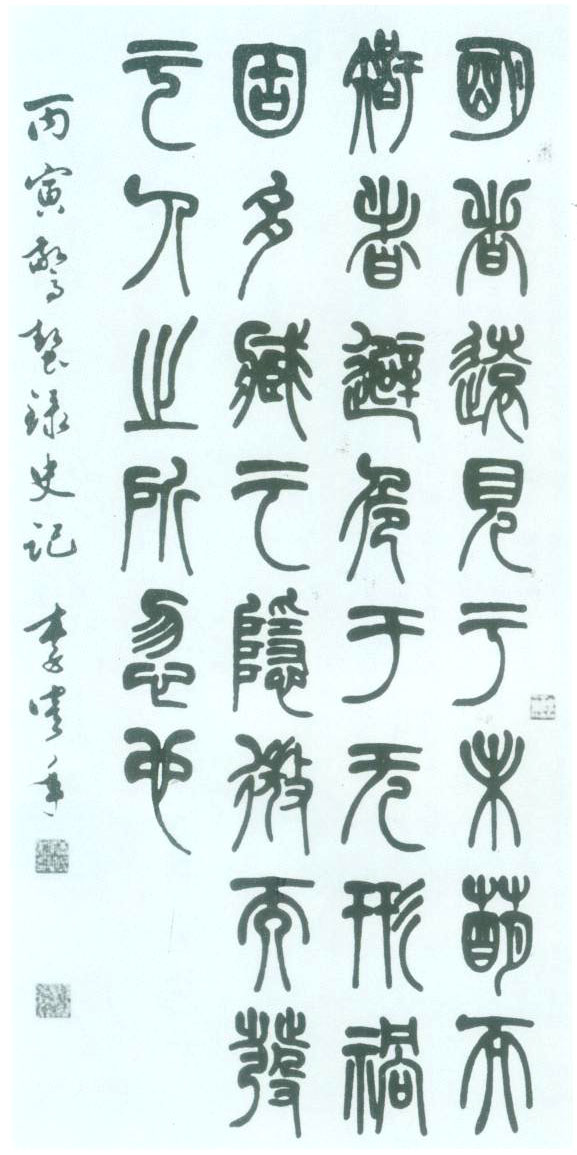 明者遠見于未萌而
智者避危于无形禍
固多藏于隱微而發
于人之所忽也
丙寅驚蟄録史記 李年